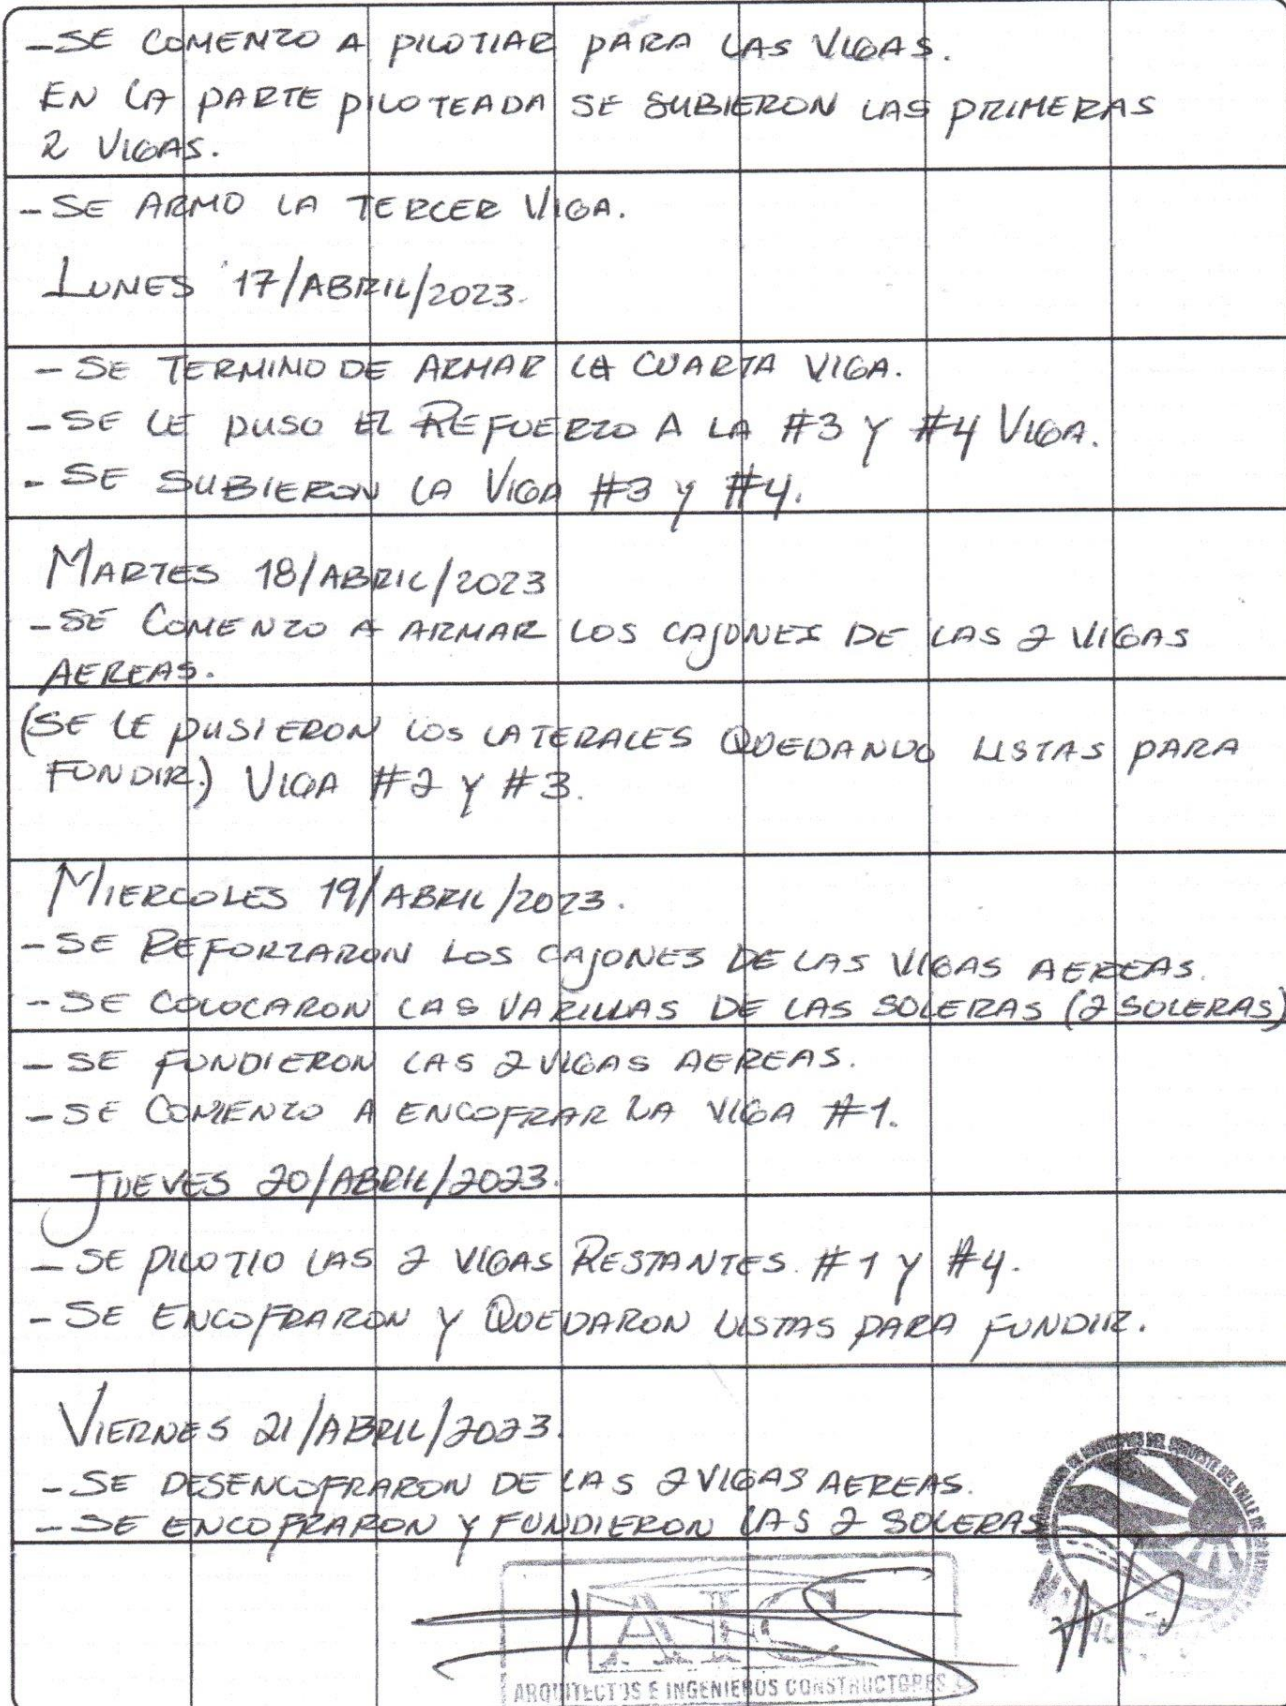 -SE COMENZO A PILOTIAR PARA LAS VIGAS.
EN LA PARTE PILOTEADA SE SUBIERON LAS PRIMERAS
2 VIGAS.
-SE ARMO LA TERCER VIGA.
LUNES 17/ABRIL/2023.
-SE TERMINO DE ARMAR LA CUARTA VIGA.
-SE LE PUSO EL REFUERZO A LA #3 Y #4 VIGA.
-SE SUBIERON LA VIGA #3 Y #4.
MARTES 18/ABRIL/2023
-SE COMENZO A ARMAR LOS CAJONES DE LAS 2 VIGAS
AEREAS.
(SE LE PUSIERON LOS LATERALES QUEDANDO LISTAS PARA
FUNDIR.) VIGA #2 Y #3.
MIERCOLES 19/ABRIL/2023.
-SE REFORZARON LOS CAJONES DE LAS VIGAS AEREAS.
-SE COLOCARON LAS VARILLAS DE LAS SOLERAS (2 SOLERAS)
-SE FUNDIERON LAS 2 VIGAS AEREAS.
-SE COMIENZO A ENCOFRAR LA VIGA #1.
JUEVES 20/ABRIL/2023.
-SE PILOTIO LAS 2 VIGAS RESTANTES. #1 Y #4.
-SE ENCOFRARON Y QUEDARON LISTAS PARA FUNDIR.
VIERNES 21/ABRIL/2023.
-SE DESENCOFRARON DE LAS 2 VIGAS AEREAS.
-SE ENCOFRARON Y FUNDIERON LAS 2 SOLERAS
DE MUNICIPIOS DEL SUROESTE DEL VALLE DE
AIC
ARQUITECTOS E INGENIEROS CONSTRUCTORES